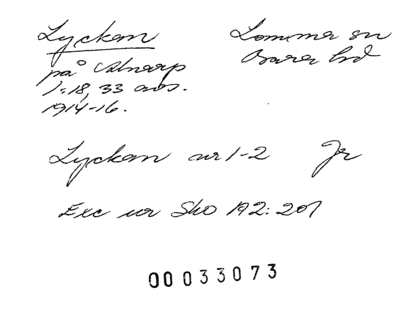 Lyckan
Lomma sn
på Alnarp
Bara hd
1:18, 33 avs.
1914-16.
Lyckan nr 1-2 Jr
Exc ur Sko 192: 201
00033073